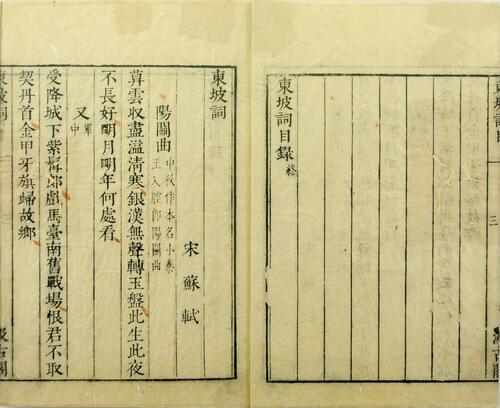 東坡詞目錄終
東坡詞目
三
汲古閣
東坡詞
宋 蘇軾
陽關曲 中秋作本名小秦
王入腔即陽關曲
暮雲収盡溢清寒銀漢無聲轉玉盤此生此夜
不長好明月明年何處看
又 軍
中
受降城下紫髯郎戲馬臺南舊戰場恨君不取
契丹首金甲牙旗歸故鄉
東坡詞
汲古閣